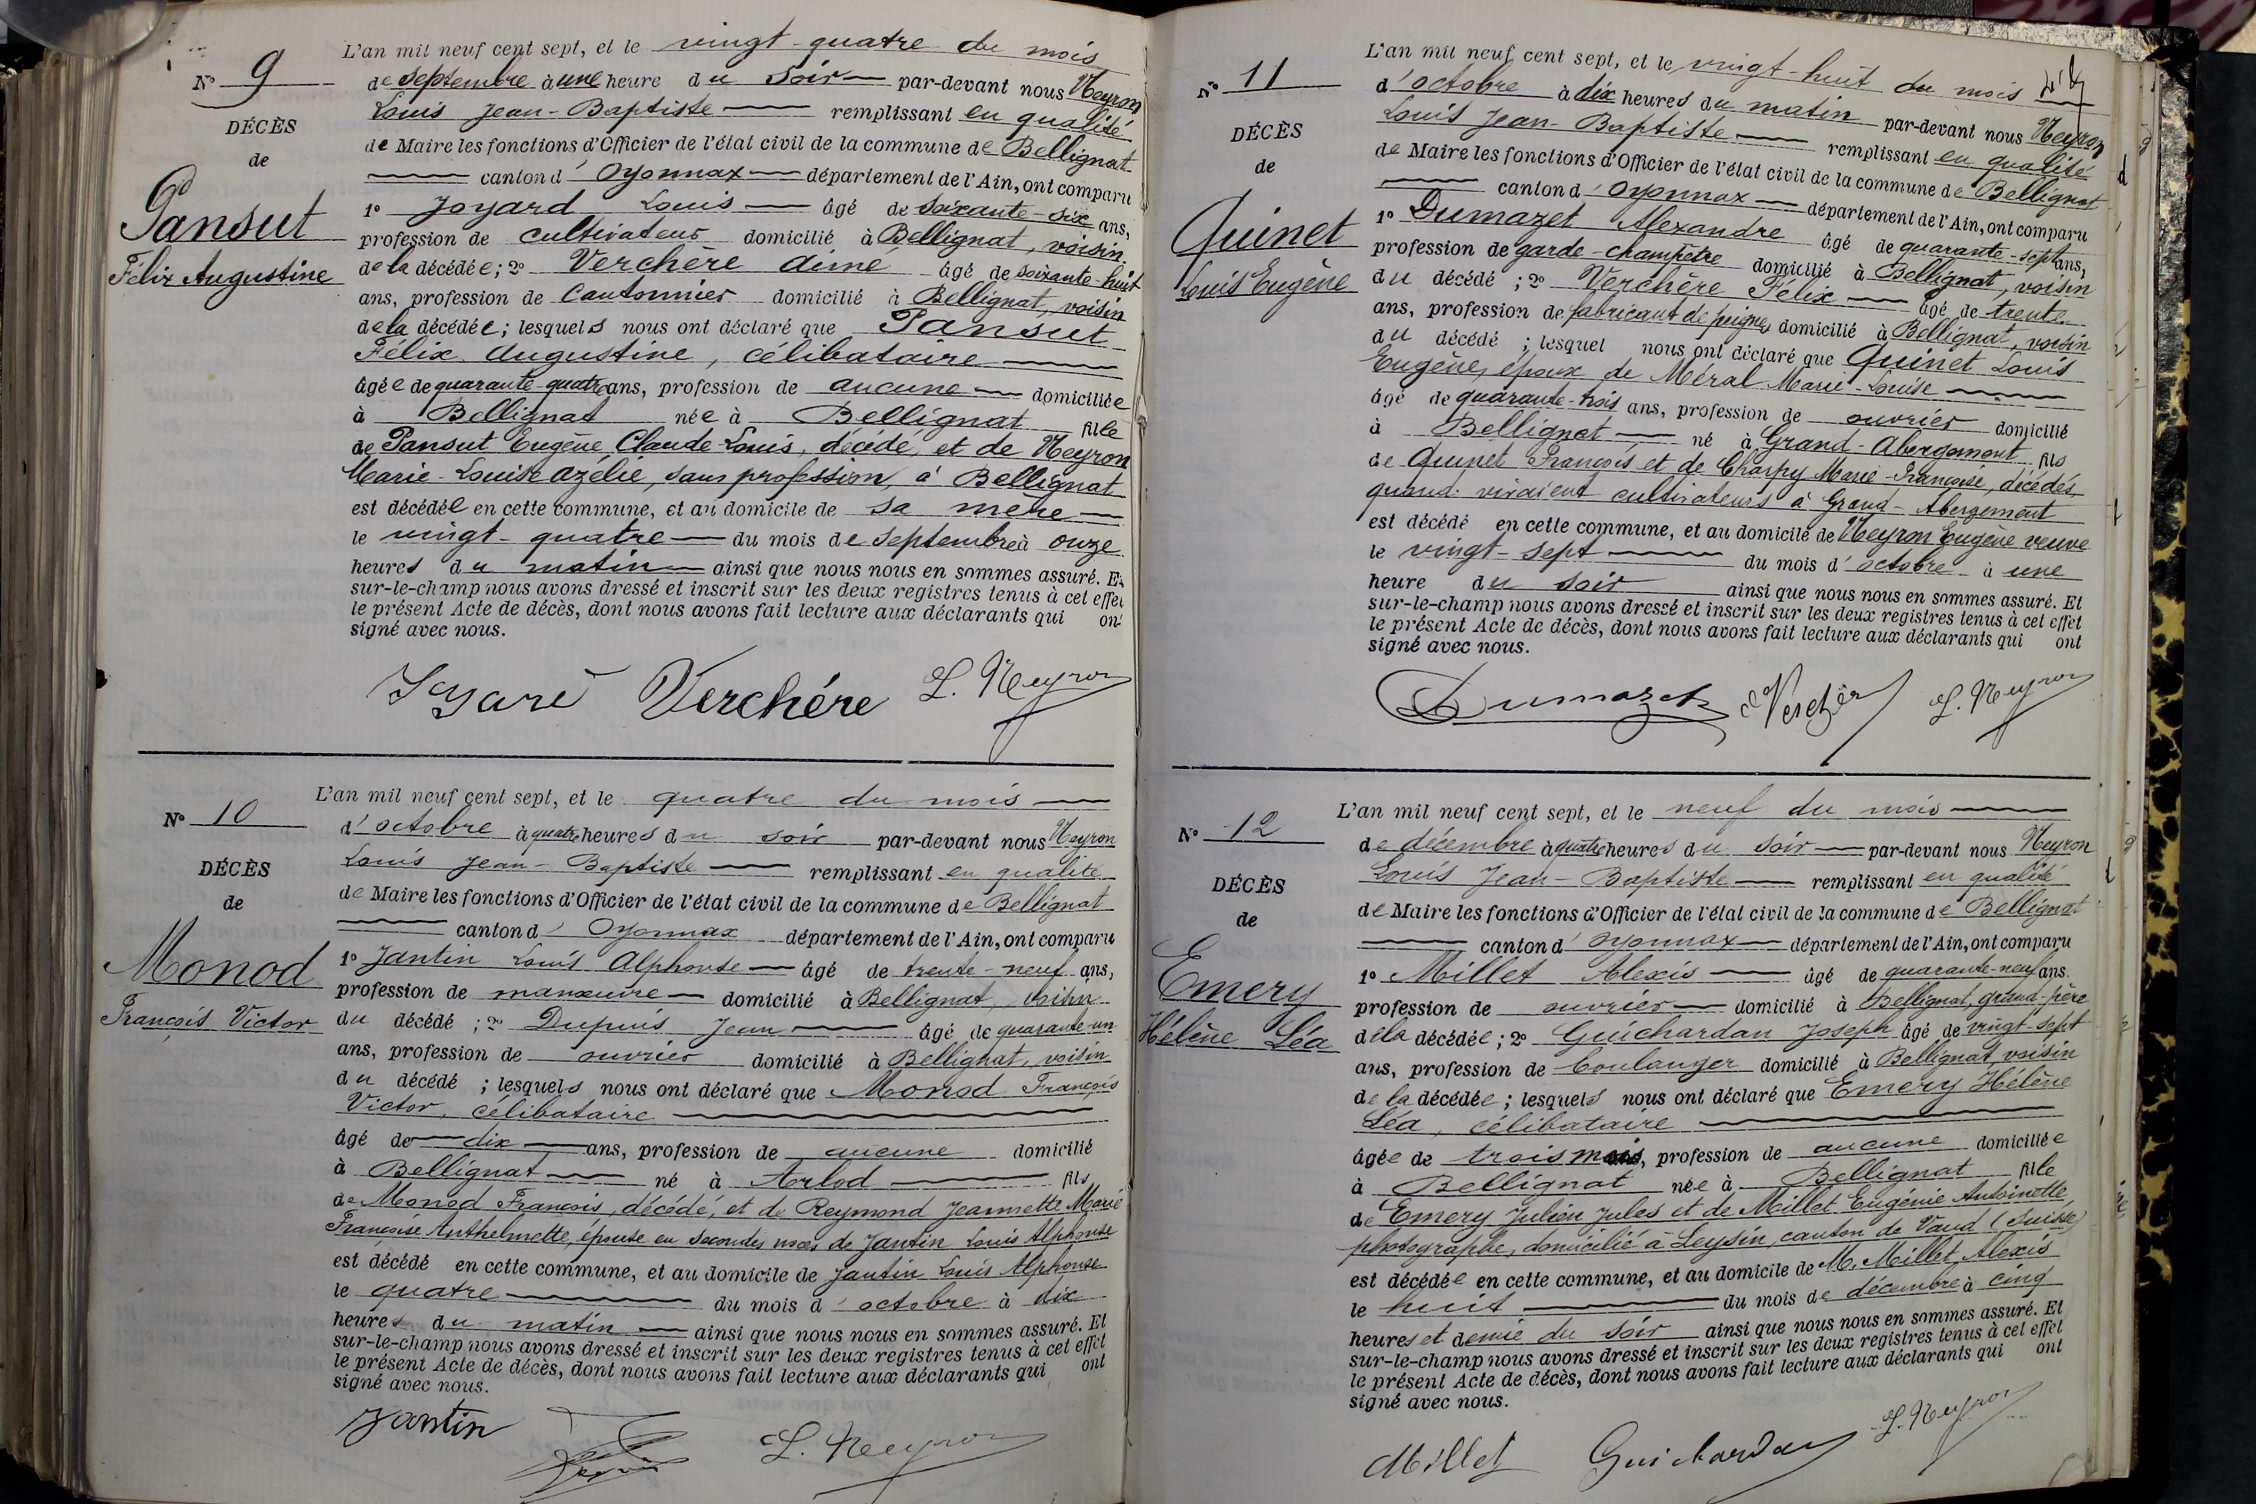 N° 9
DÉCÈS
de
Pansut
Félix Augustine
L'an mil neuf cent sept, et le vingt-quatre du mois
de septembre à une heure du soir par-devant nous Neyron
Louis Jean-Baptiste remplissant en qualité
de Maire les fonctions d'Officier de l'état civil de la commune de Bellignat
canton d'Oyonnax département de l'Ain, ont comparu
1° Joyard Louis âgé de soixante-six ans,
profession de cultivateur domicilié à Bellignat, voisin
de la décédée; 2° Verchère Aimé âgé de soixante-huit
ans, profession de Cantonnier domicilié à Bellignat, voisin
de la décédée; lesquels nous ont déclaré que Pansut
Félix Augustine, célibataire
âgée de quarante-quatre ans, profession de aucune domiciliée
à Bellignat née à Bellignat fille
de Pansut Eugène Claude-Louis, décédé, et de Neyron
Marie-Louise Azélie, sans profession, à Bellignat
est décédée en cette commune, et au domicile de sa mère
le vingt-quatre du mois de septembre à onze
heures du matin ainsi que nous nous en sommes assuré. Et
sur-le-champ nous avons dressé et inscrit sur les deux registres tenus à cet effet
le présent Acte de décès, dont nous avons fait lecture aux déclarants qui ont
signé avec nous.
Verchére L. Neyron
N° 10
DÉCÈS
de
Monod
François Victor
L'an mil neuf cent sept, et le quatre du mois
d'octobre à quatre heures du soir par-devant nous Neyron
Louis Jean-Baptiste remplissant en qualité
de Maire les fonctions d'Officier de l'état civil de la commune de Bellignat
canton d'Oyonnax département de l'Ain, ont comparu
1° Jantin Louis Alphonse âgé de trente-neuf ans,
profession de manœuvre domicilié à Bellignat, voisin
du décédé; 2° Dupuis Jean âgé de quarante-un
ans, profession de ouvrier domicilié à Bellignat, voisin
du décédé; lesquels nous ont déclaré que Monod François
Victor, célibataire
âgé de dix ans, profession de aucune domicilié
à Bellignat né à Arlod fils
de Monod François, décédé, et de Reymond Jeannette Marie
Françoise Anthelmette, épouse en secondes noces de Jantin Louis Alphonse
est décédé en cette commune, et au domicile de Jantin Louis Alphonse
le quatre du mois d'octobre à dix
heures du matin ainsi que nous nous en sommes assuré. Et
sur-le-champ nous avons dressé et inscrit sur les deux registres tenus à cet effet
le présent Acte de décès, dont nous avons fait lecture aux déclarants qui ont
signé avec nous.
Jantin L. Neyron
N° 11
DÉCÈS
de
Quinet
Louis Eugène
L'an mil neuf cent sept, et le vingt-huit du mois
d'octobre à dix heures du matin par-devant nous Neyron
Louis Jean-Baptiste remplissant en qualité
de Maire les fonctions d'Officier de l'état civil de la commune de Bellignat
canton d'Oyonnax département de l'Ain, ont comparu
1° Dumazet Alexandre âgé de quarante-sept ans,
profession de garde-champêtre domicilié à Bellignat, voisin
du décédé; 2° Verchère Félix âgé de trente
ans, profession de fabricant de peignes domicilié à Bellignat, voisin
du décédé; lesquel nous ont déclaré que Quinet Louis
Eugène, époux de Méral Marie-Louise
âgé de quarante-trois ans, profession de ouvrier domicilié
à Bellignat né à Grand-Abergement fils
de Quinet François et de Charpy Marie-Françoise, décédés,
quand vivaient cultivateurs à Grand-Abergement
est décédé en cette commune, et au domicile de Neyron Eugène veuve
le vingt-sept du mois d'octobre à une
heure du soir ainsi que nous nous en sommes assuré. Et
sur-le-champ nous avons dressé et inscrit sur les deux registres tenus à cet effet
le présent Acte de décès, dont nous avons fait lecture aux déclarants qui ont
signé avec nous.
Dumazet Verchère L. Neyron
N° 12
DÉCÈS
de
Emery
Hélène Léa
L'an mil neuf cent sept, et le neuf du mois
de décembre à quatre heures du soir par-devant nous Neyron
Louis Jean-Baptiste remplissant en qualité
de Maire les fonctions d'Officier de l'état civil de la commune de Bellignat
canton d'Oyonnax département de l'Ain, ont comparu
1° Millet Alexis âgé de quarante-neuf ans.
profession de ouvrier domicilié à Bellignat, grand-père
de la décédée; 2° Guichardan Joseph âgé de vingt-sept
ans, profession de boulanger domicilié à Bellignat, voisin
de la décédée; lesquels nous ont déclaré que Emery Hélène
Léa, célibataire
âgée de trois mois, profession de aucune domiciliée
à Bellignat née à Bellignat fille
de Emery Julien Jules et de Millet Eugénie Antoinette,
photographe, domicilié à Leysin, canton de Vaud (Suisse)
est décédée en cette commune, et au domicile de M. Millet Alexis
le huit du mois de décembre à cinq
heures et demie du soir ainsi que nous nous en sommes assuré. Et
sur-le-champ nous avons dressé et inscrit sur les deux registres tenus à cet effet
le présent Acte de décès, dont nous avons fait lecture aux déclarants qui ont
signé avec nous.
Millet Guichardan L. Neyron